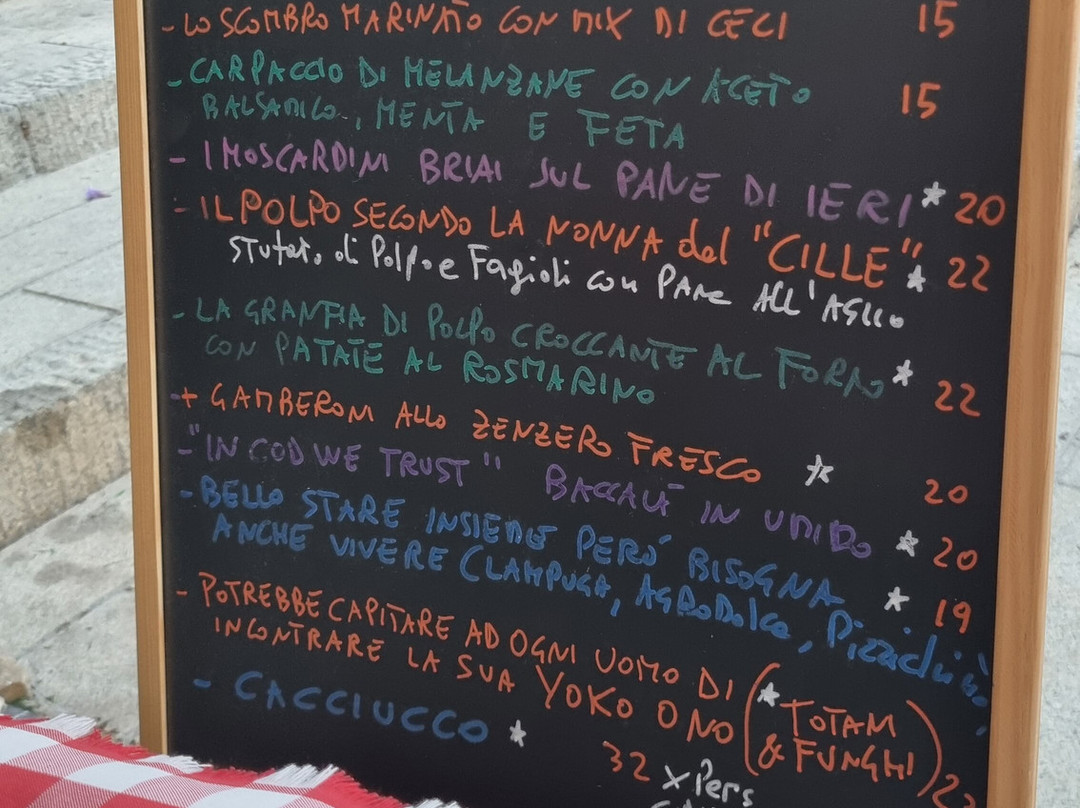 - LO SCOMBRO MARINATO CON MIX DI CECI 15
- CARPACCIO DI MELANZANE CON ACETO 15
BALSAMICO, MENTA E FETA
- I MOSCARDINI BRIAI SUL PANE DI IERI * 20
- IL POLPO SECONDO LA NONNA del "CILLE" * 22
STUfato di Polpo e Fagioli con PANE ALL'AGLIO
- LA GRANFIA DI POLPO CROCCANTE AL FORNO * 22
CON PATATE AL ROSMARINO
+ GAMBERONI ALLO ZENZERO FRESCO * 20
- "IN COD WE TRUST" BACCALÀ IN UMIDO * 20
- BELLO STARE INSIEME PERÓ BISOGNA * 19
ANCHE VIVERE (LAMPUGA, AGRODOLCE, Pizzichino,
- POTREBBE CAPITARE AD OGNI UOMO DI (* TOTANI
INCONTRARE LA SUA YOKO ONO & FUNGHI)
- CACCIUCCO *
32 x Pers